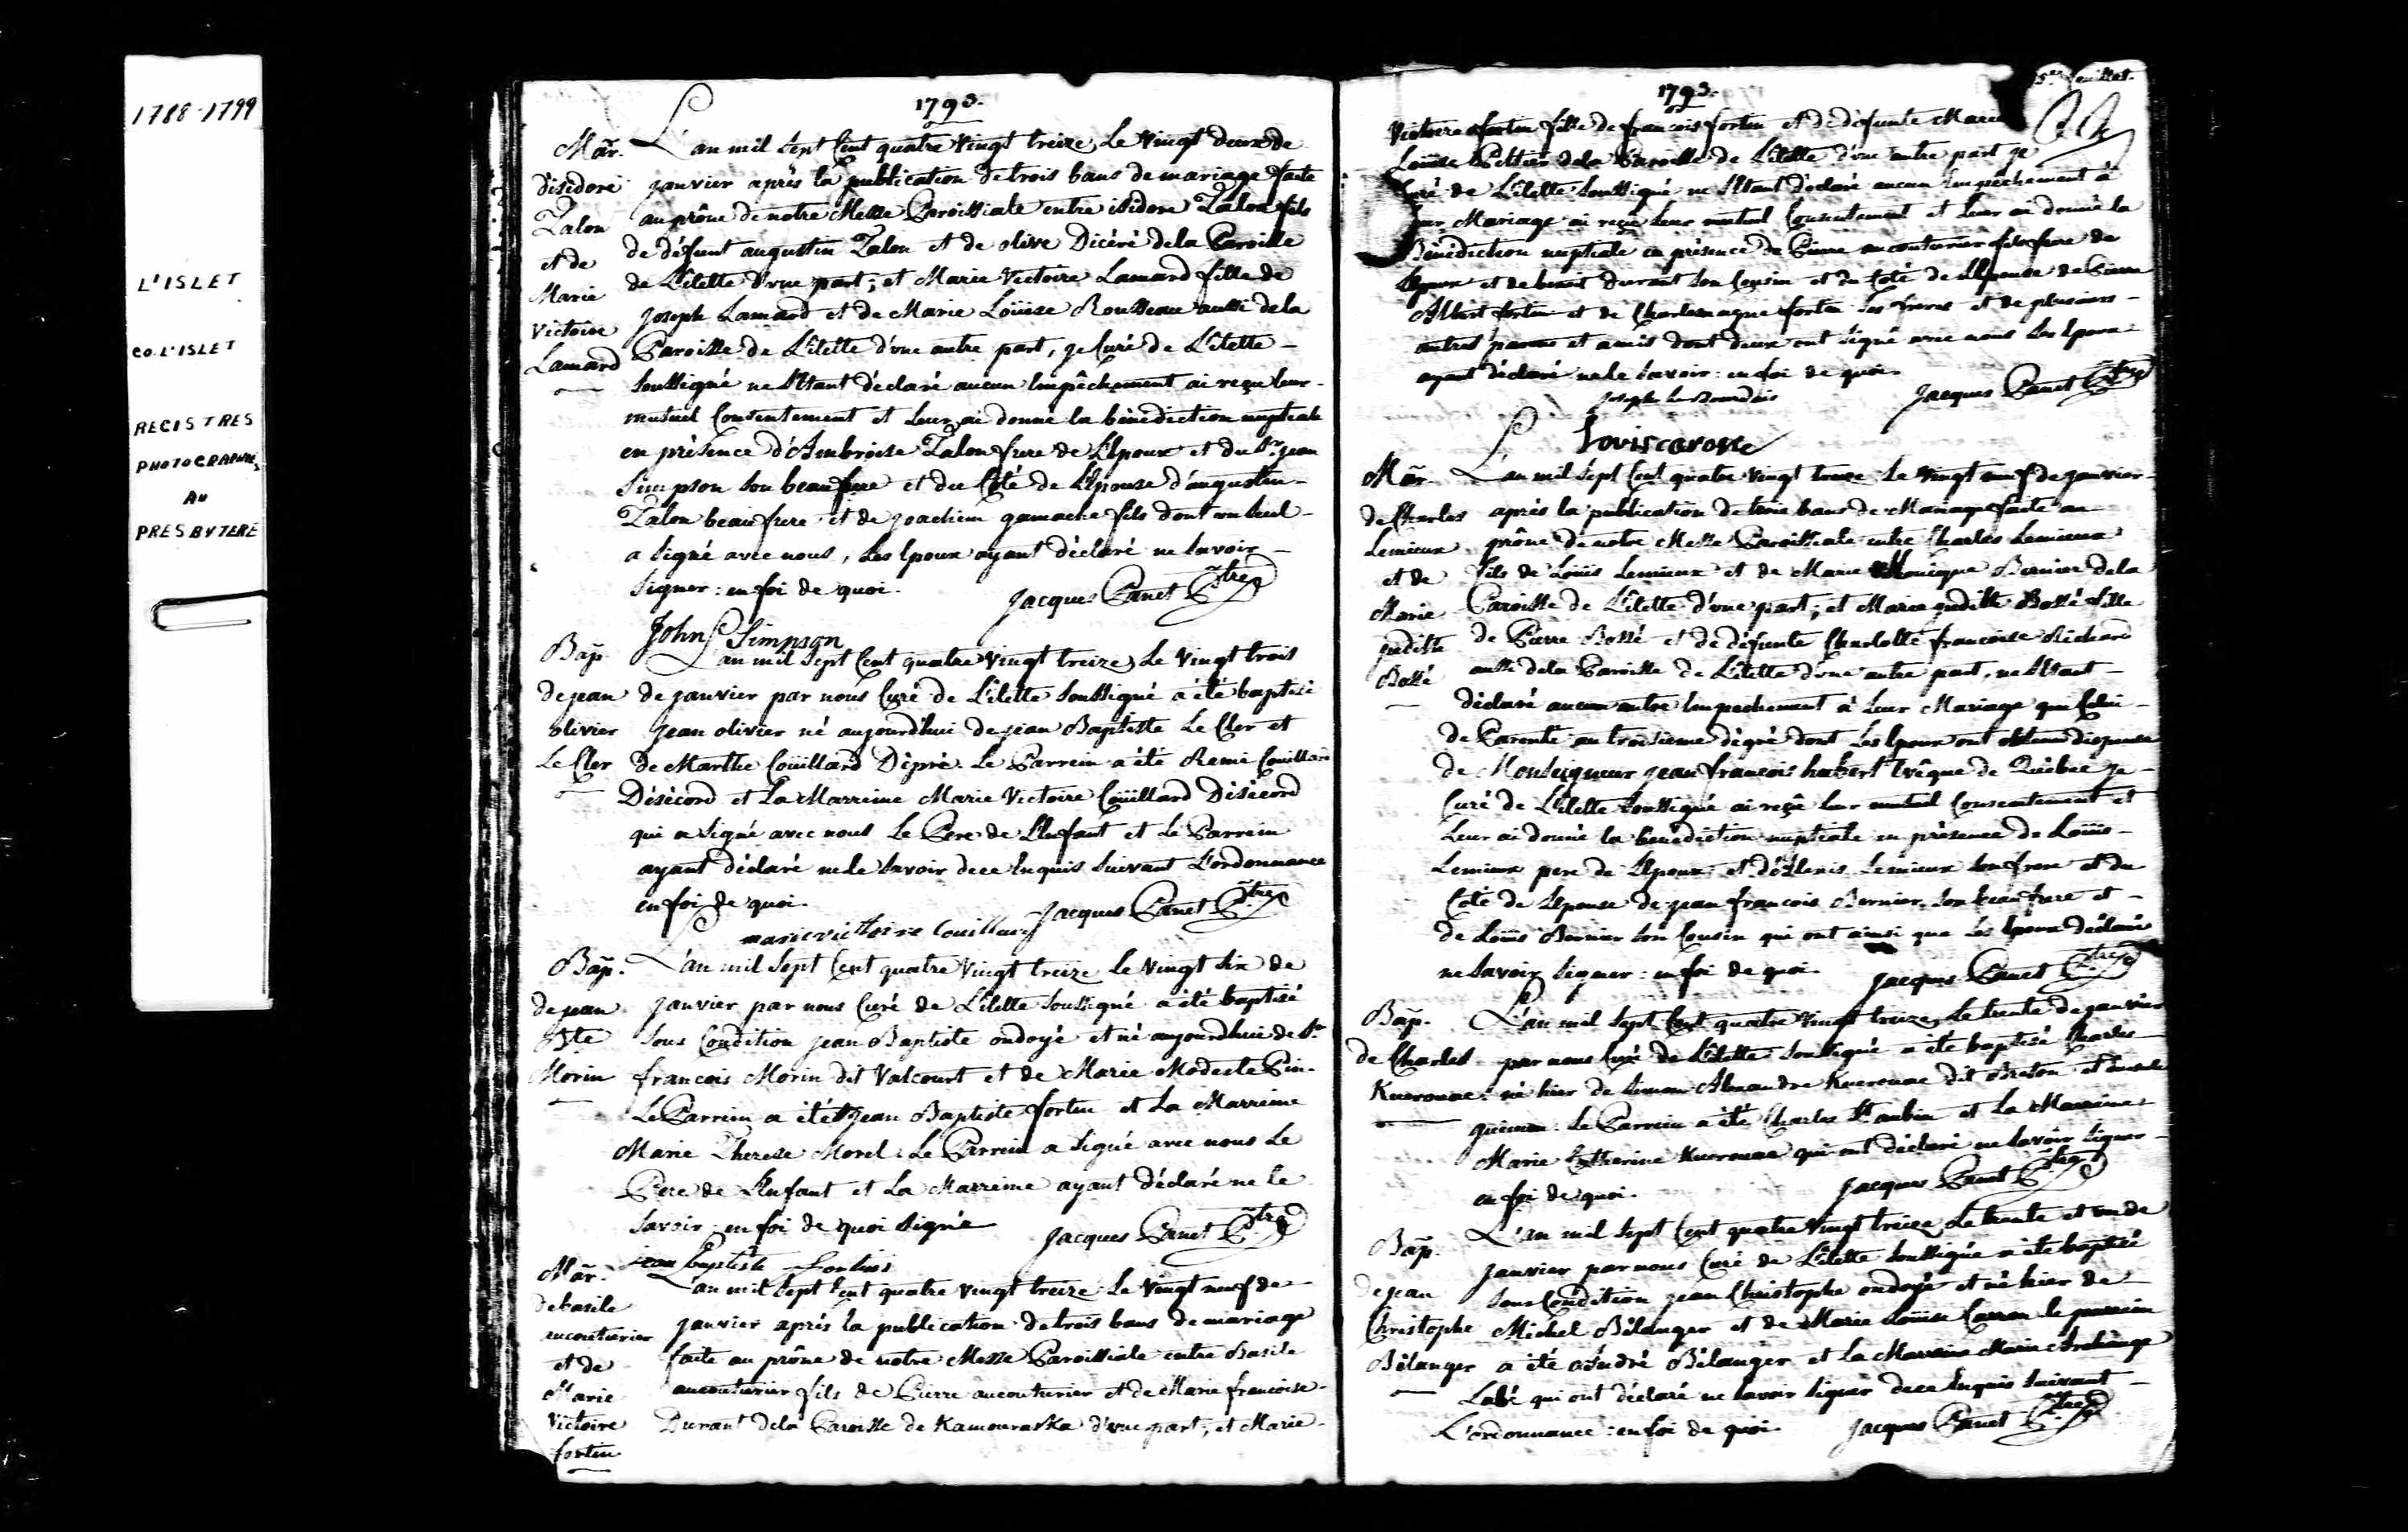 1788-1799
L'ISLET
CO. L'ISLET
REGISTRES
PHOTOGRAPHIÉS
AU
PRESBYTERE
1793.
Mar.
disidore
Zalon
et de
Marie
Victoire
Lamard
L'an mil Sept Cent quatre Vingt treize Le Vingt deux de
janvier après la publication de trois bans de mariage faite
au prône de notre Messe Paroissiale entre isidore Zalon fils
de défunt augustin Zalon et de olive Dicéré de la Paroisse
de L'ilette d'une part; et Marie Victoire Lamard fille de
joseph Lamard et de Marie Loüise Rousseau aussi de la
Paroisse de L'ilette d'vne autre part, je Curé de L'ilette
soussigné ne s'étant déclaré aucun Empêchement ai reçu leur
mutuel Consentement et leur ai donné la bénédiction nuptiale
en présence d'Ambroise Zalon frere de L'Epoux et du Sr. jean
Simpson son beau frere et du Côté de L'Epouse d'augustin
Zalon beau frere et de joachim gamache fils dont un seul
a signé avec nous, les Epoux ayant déclaré ne savoir
signer: en foi de quoi.
Jacques Panet Ptre
John Simpson
Bap.
de jean
olivier
Le Cler
L'an mil Sept Cent quatre Vingt treize Le Vingt trois
de janvier par nous Curé de L'ilette soussigné a été baptisé
jean olivier né aujourd'hui de jean Baptiste Le Cler et
de Marthe Coüillard Dépré. Le Parrein a été Remi Couillard
Désécord et La Marreine Marie Victoire Coüillard Désécord
qui a signé avec nous Le Pere de L'Enfant et Le Parrein
ayant déclaré ne le savoir de ce Enquis suivant L'ordonnance
en foi de quoi.
Jacques Panet Ptre
marie victtoire Couillard
Bap.
de jean
Bte
Morin
L'an mil Sept Cent quatre Vingt treize Le Vingt six de
janvier par nous Curé de L'ilette soussigné a été baptisé
sous Condition jean Baptiste ondoyé et né aujourdhui de Sr.
francois Morin dit Valcourt et de Marie Modeste Pin.
Le Parrein a été jean Baptiste fortin et La Marreine
Marie Therese Morel. Le Parrein a signé avec nous Le
Pere de L'Enfant et La Marreine ayant déclaré ne le
savoir en foi de quoi signé
Jacques Panet Ptre
jean baptiste fortin
Mar.
de basile
aucouturier
et de
Marie
Victoire
fortin
L'an mil Sept Cent quatre Vingt treize Le Vingt neuf de
janvier après la publication de trois bans de mariage
faite au prône de notre Messe Paroissiale entre Basile
aucouturier fils de Pierre aucouturier et de Marie francoise
Durant de la Paroisse de Kamouraska d'vne part; et Marie
1793.
feuillet.
Victoire fortin fille de francois fortin et de défunte Marie
Loüise Peltier de la Paroisse de L'ilette d'vne autre part je
Curé de L'ilette soussigné ne s'étant déclaré aucun Empêchement à
leur Mariage ai reçu leur mutuel Consentement et leur ai donné la
Bénédiction nuptiale en présence de Pierre aucouturier fils frere de
L'Epoux et de benoit Durant son Cousin et du Coté de L'Epouse de Pierre
Albert fortin et de Charlemagne fortin ses freres et de plusieurs
autres parens et amis dont deux ont signé avec nous les Epoux
ayant déclaré ne le savoir: en foi de quoi.
Joseph le Bourdais
Jacques Panet Ptre
Mar.
de Charles
Lemieux
et de
Marie
judithe
Bossé
L'an mil Sept Cent quatre Vingt treize Le Vingt neuf de janvier
après la publication de trois bans de Mariage faite au
prône de notre Messe Paroissiale entre Charles Lemieux
fils de Loüis Lemieux et de Marie Monique Bernier de la
Paroisse de L'ilette d'vne part; et Marie judithe Bossé fille
de Pierre Bossé et de défunte Charlotte francoise Richard
aussi de la Paroisse de L'ilette d'vne autre part, ne s'étant
déclaré aucun autre Empechement à leur Mariage que Celui
de Parenté au troisieme dégré dont les Epoux ont obtenu dispense
de Monseigneur jean francois hubert Evêque de Québec je
Curé de L'ilette soussigné ai reçû leur mutuel Consentement et
leur ai donné la bénédiction nuptiale en présence de Loüis
Lemieux pere de L'Epoux et d'Alexis Lemieux son frere et du
Coté de L'Epouse de jean francois Bernier son beau frere et
de Loüis Bernier son Cousin qui ont ainsi que les Epoux déclaré
ne savoir signer: en foi de quoi.
Jacques Panet Ptre
Bap.
de Charles
Kuerouac
L'an mil Sept Cent quatre Vingt treize Le trente de janvier
par nous Curé de L'ilette soussigné a été baptisé Charles
né hier de simon Alexandre Kuerouac dit Breton et
guimon. Le Parrein a été Charles St. aubin et La Marreine
Marie Catherine Kuerouac qui ont déclaré ne savoir signer
en foi de quoi.
Jacques Panet Ptre
Bap.
de jean
Christophe
Bélanger
L'an mil Sept Cent quatre Vingt treize Le trente et un de
janvier par nous Curé de L'ilette soussigné a été baptisé
sous Condition jean Christophe ondoyé et né hier de
Michel Bélanger et de Marie Loüise Carron le parrein
a été André Bélanger et La Marreine Marie Archange
Labé qui ont déclaré ne savoir signer de ce Enquis suivant
L'ordonnance: en foi de quoi.
Jacques Panet Ptre